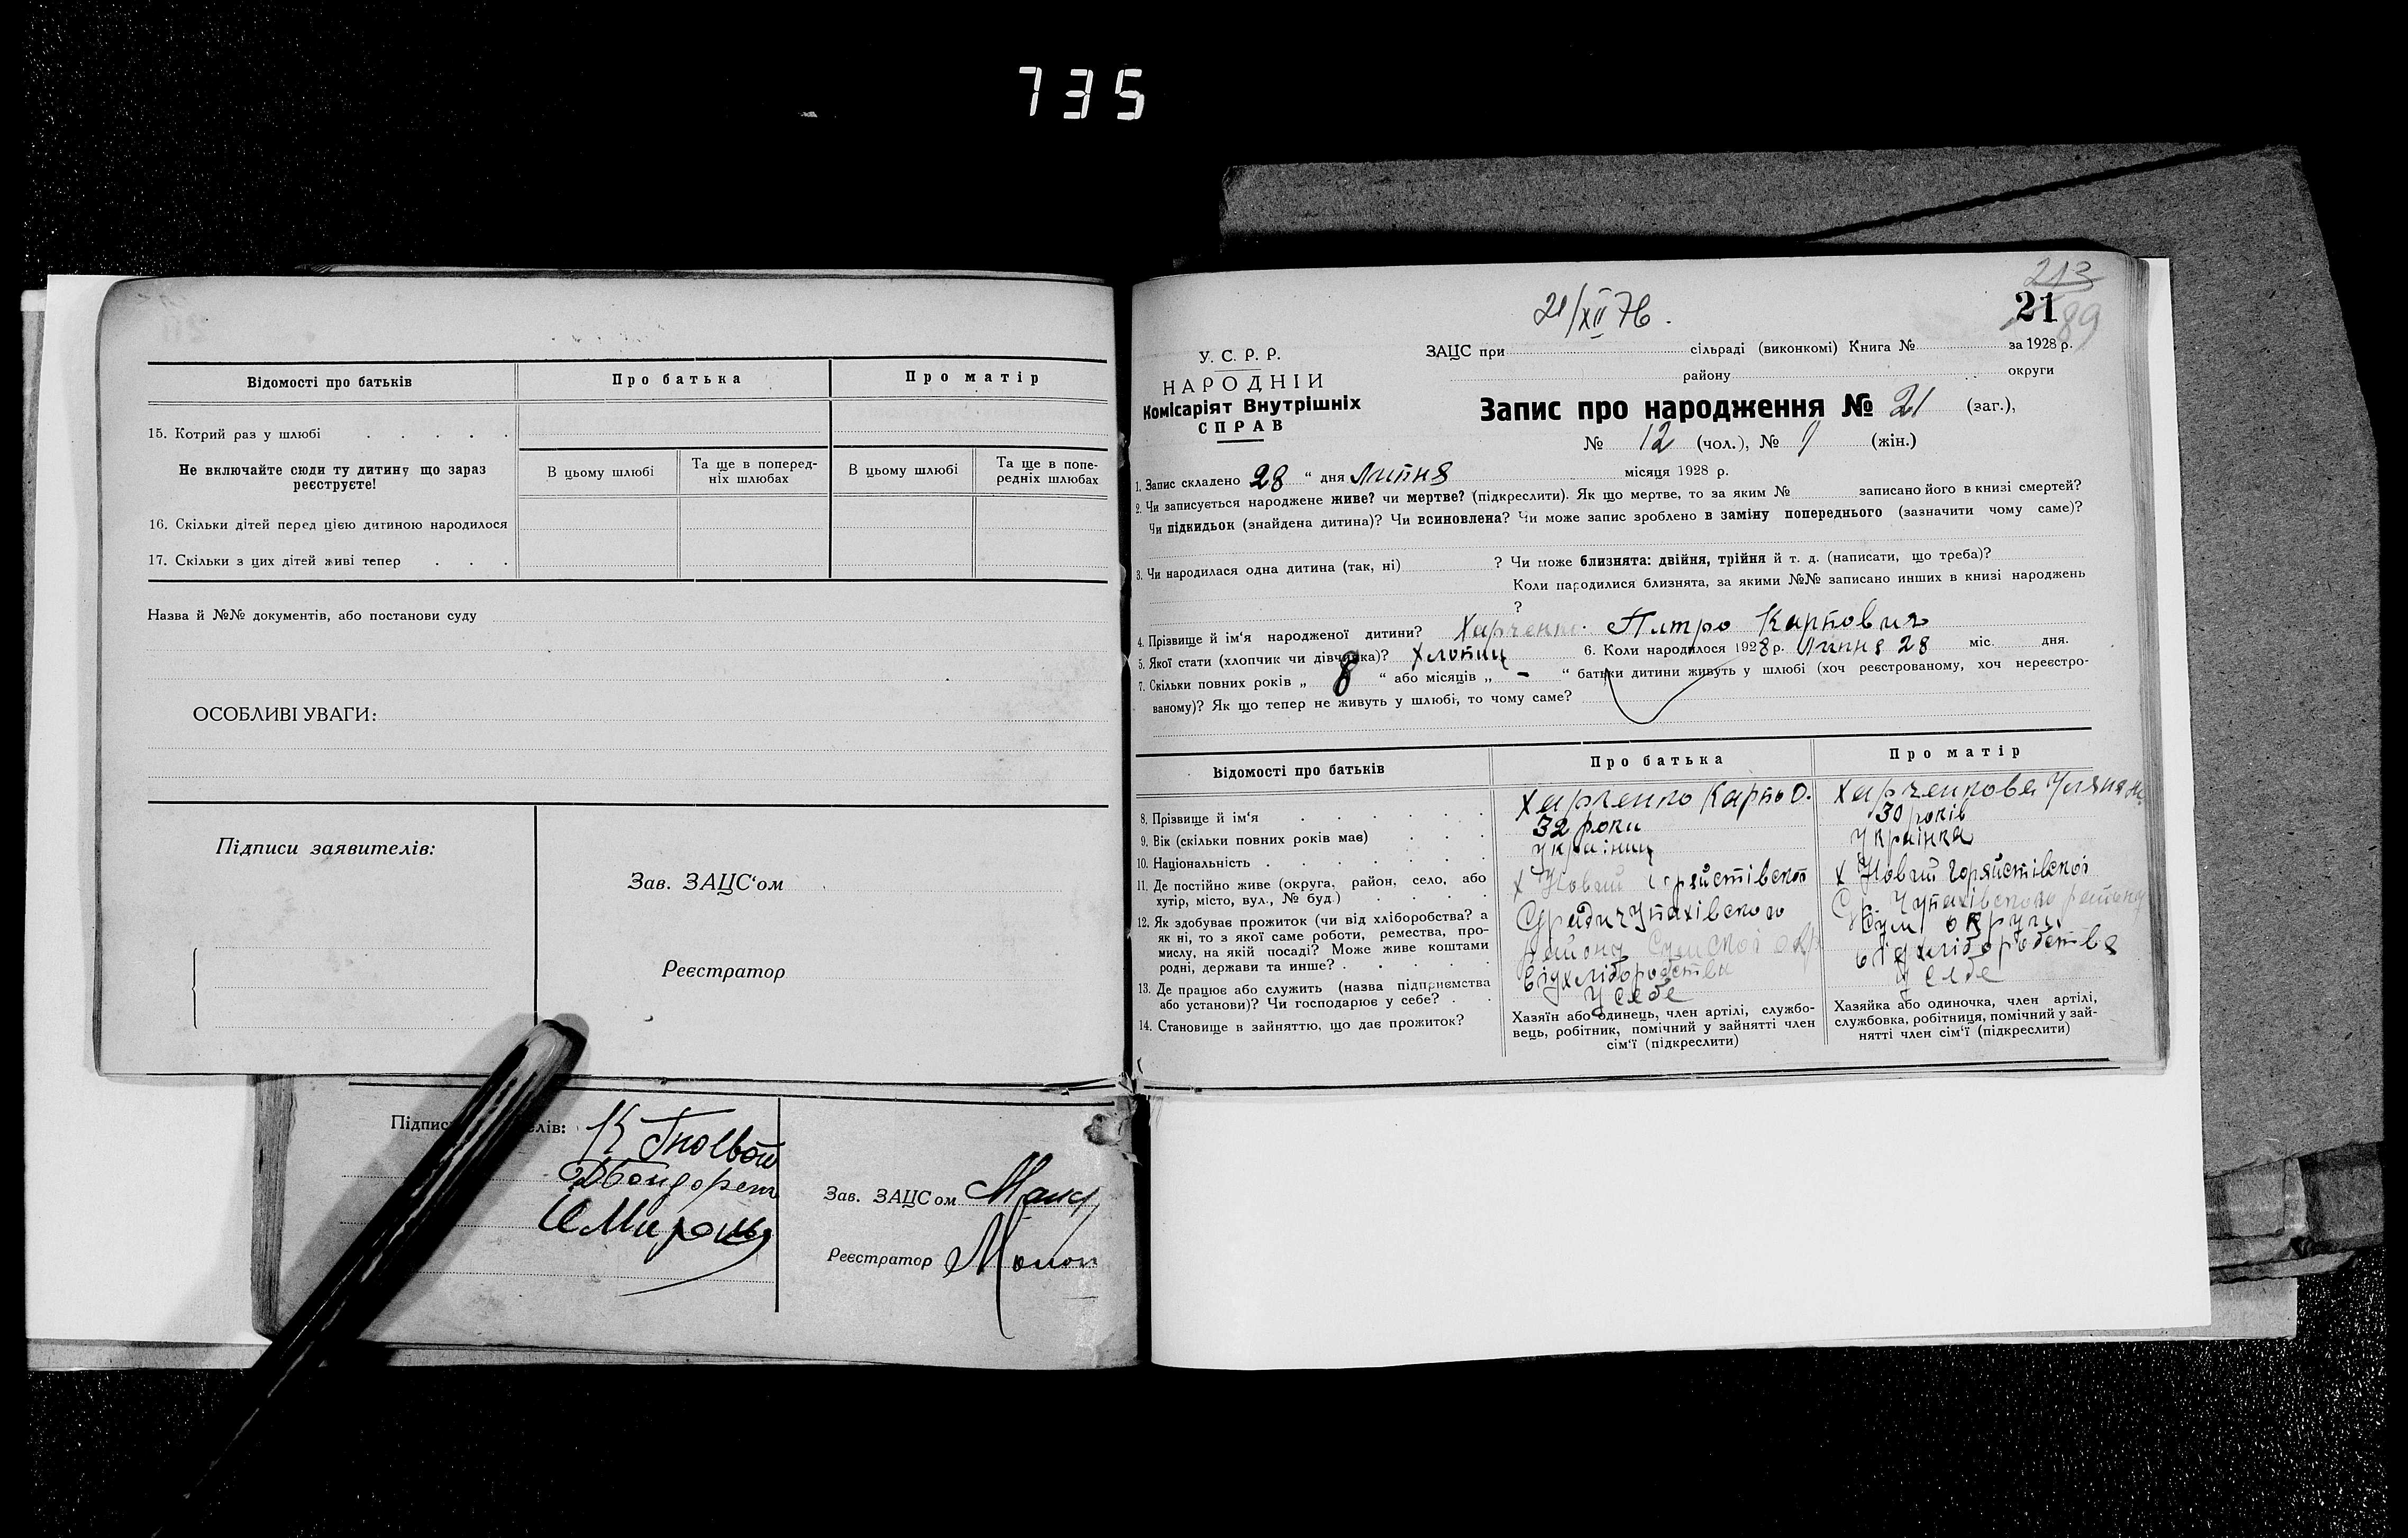 735
Відомості про батьків
Про батька
Про матір
15. Котрий раз у шлюбі
Не включайте сюди ту дитину що зараз реєструєте!
В цьому шлюбі
Та ще в поперед-
ніх шлюбах
В цьому шлюбі
Та ще в попе-
редніх шлюбах
16. Скільки дітей перед цією дитиною народилося
17. Скільки з цих дітей живі тепер
Назва й №№ документів, або постанови суду
ОСОБЛИВІ УВАГИ:
Підписи заявителів:
Зав. ЗАЦС‘ом
Реєстратор
Підпис елів:
Зав. ЗАЦС ом
Реєстратор
213
21/XII 76.
21
89
У. С. Р. Р.
НАРОДНІЙ
Комісаріят Внутрішніх
СПРАВ
ЗАЦС при сільраді (виконкомі) Книга № за 1928 р.
району округи
Запис про народження № 21 (заг.),
№ 12 (чол.), № 9 (жін.)
1. Запис складено 28 “ дня Липня місяця 1928 р.
2. Чи записується народжене живе? чи мертве? (підкреслити). Як що мертве, то за яким № записано його в книзі смертей?
Чи підкидьок (знайдена дитина)? Чи всиновлена? Чи може запис зроблено в заміну попереднього (зазначити чому саме)?
3. Чи народилася одна дитина (так, ні) ? Чи може близнята: двійня, трійня й т. д. (написати, що треба)?
Коли народилися близнята, за якими №№ записано инших в книзі народжень
?
4. Прізвище й ім‘я народженої дитини? Харченко Петро Карпович
5. Якої стати (хлопчик чи дівчинка)? Хлопиц 6. Коли народилося 1928 р. Липня 28 міс. дня.
7. Скільки повних років „ 8 “ або місяців „ - “ батьки дитини живуть у шлюбі (хоч реєстрованому, хоч нереєстро-
ваному)? Як що тепер не живуть у шлюбі, то чому саме?
Відомості про батьків
Про батька
Про матір
8. Прізвище й ім‘я
9. Вік (скільки повних років має)
10. Національність
11. Де постійно живе (округа, район, село, або
хутір, місто, вул., № буд.)
12. Як здобуває прожиток (чи від хліборобства? а
як ні, то з якої саме роботи, ремества, про-
мислу, на якій посаді? Може живе коштами
родні, держави та инше?
13. Де працює або служить (назва підприємства
або установи)? Чи господарює у себе?
14. Становище в зайняттю, що дає прожиток?
Харченко Карпо О.
32 роки
Україниц
Х Новий
Сумської окр
від хліборобства
У себе
Хазяїн або одинець, член артілі, службо-
вець, робітник, помічний у зайнятті член
сім‘ї (підкреслити)
Харченкова Уляна
30 років
Українка
Х Новий
Сум округи
від хліборобства
У себе
Хазяйка або одиночка, член артілі,
службовка, робітниця, помічний у зай-
нятті член сім‘ї (підкреслити)